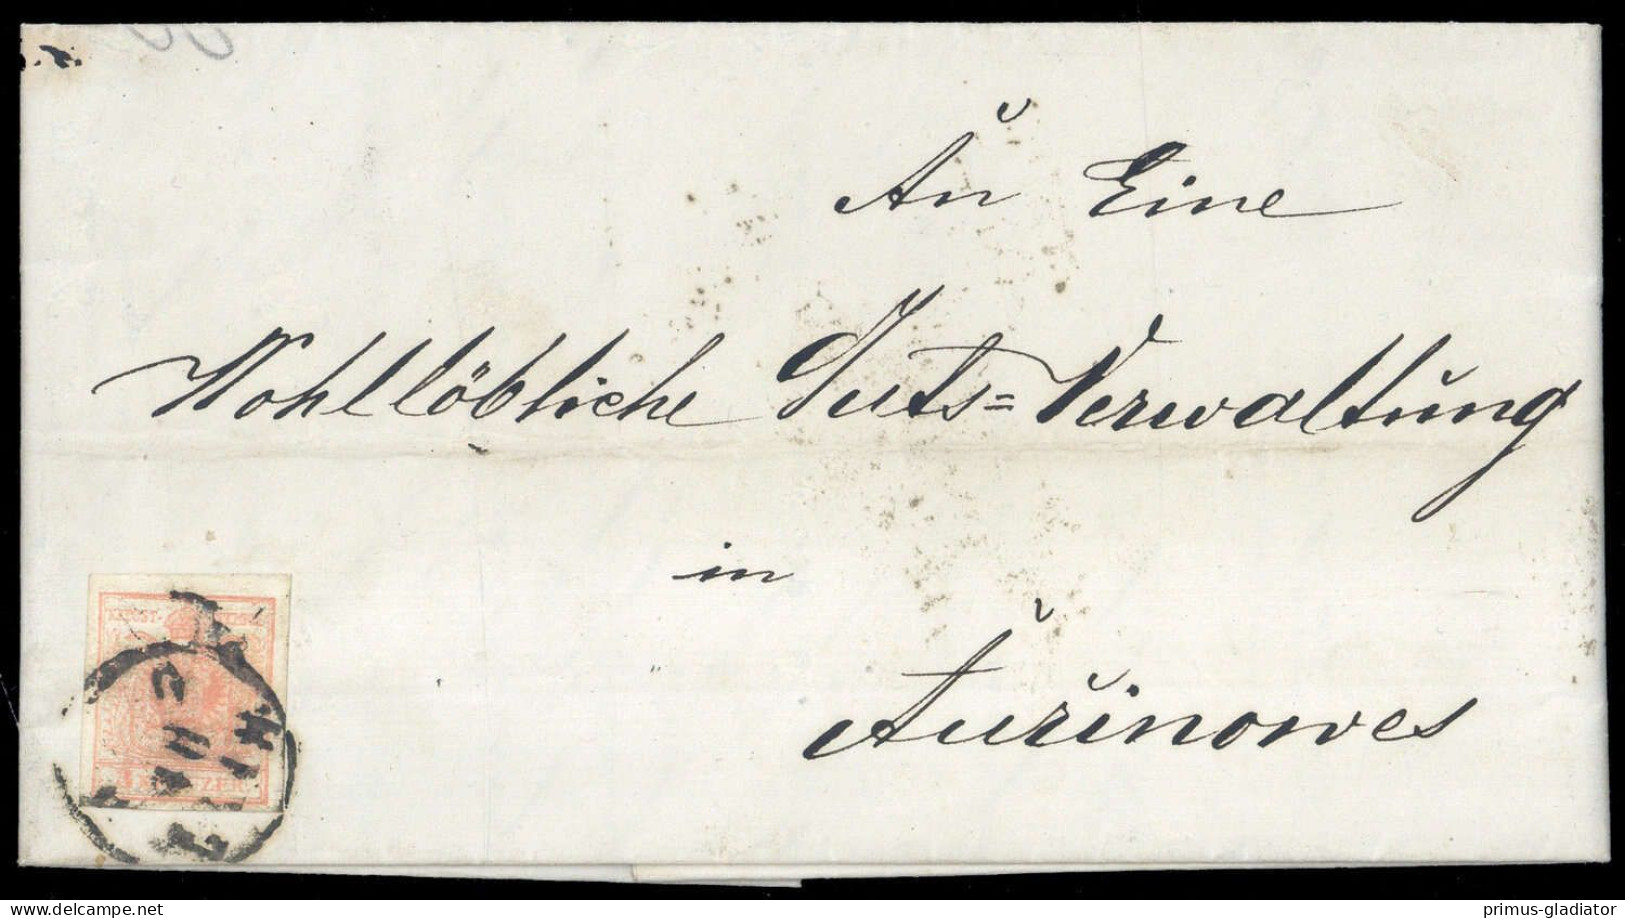 An Eine
Wohllöbliche Guts=Verwaltung
in
Aužinowes
KREUZER
www.delcampe.net
primus-gladiator